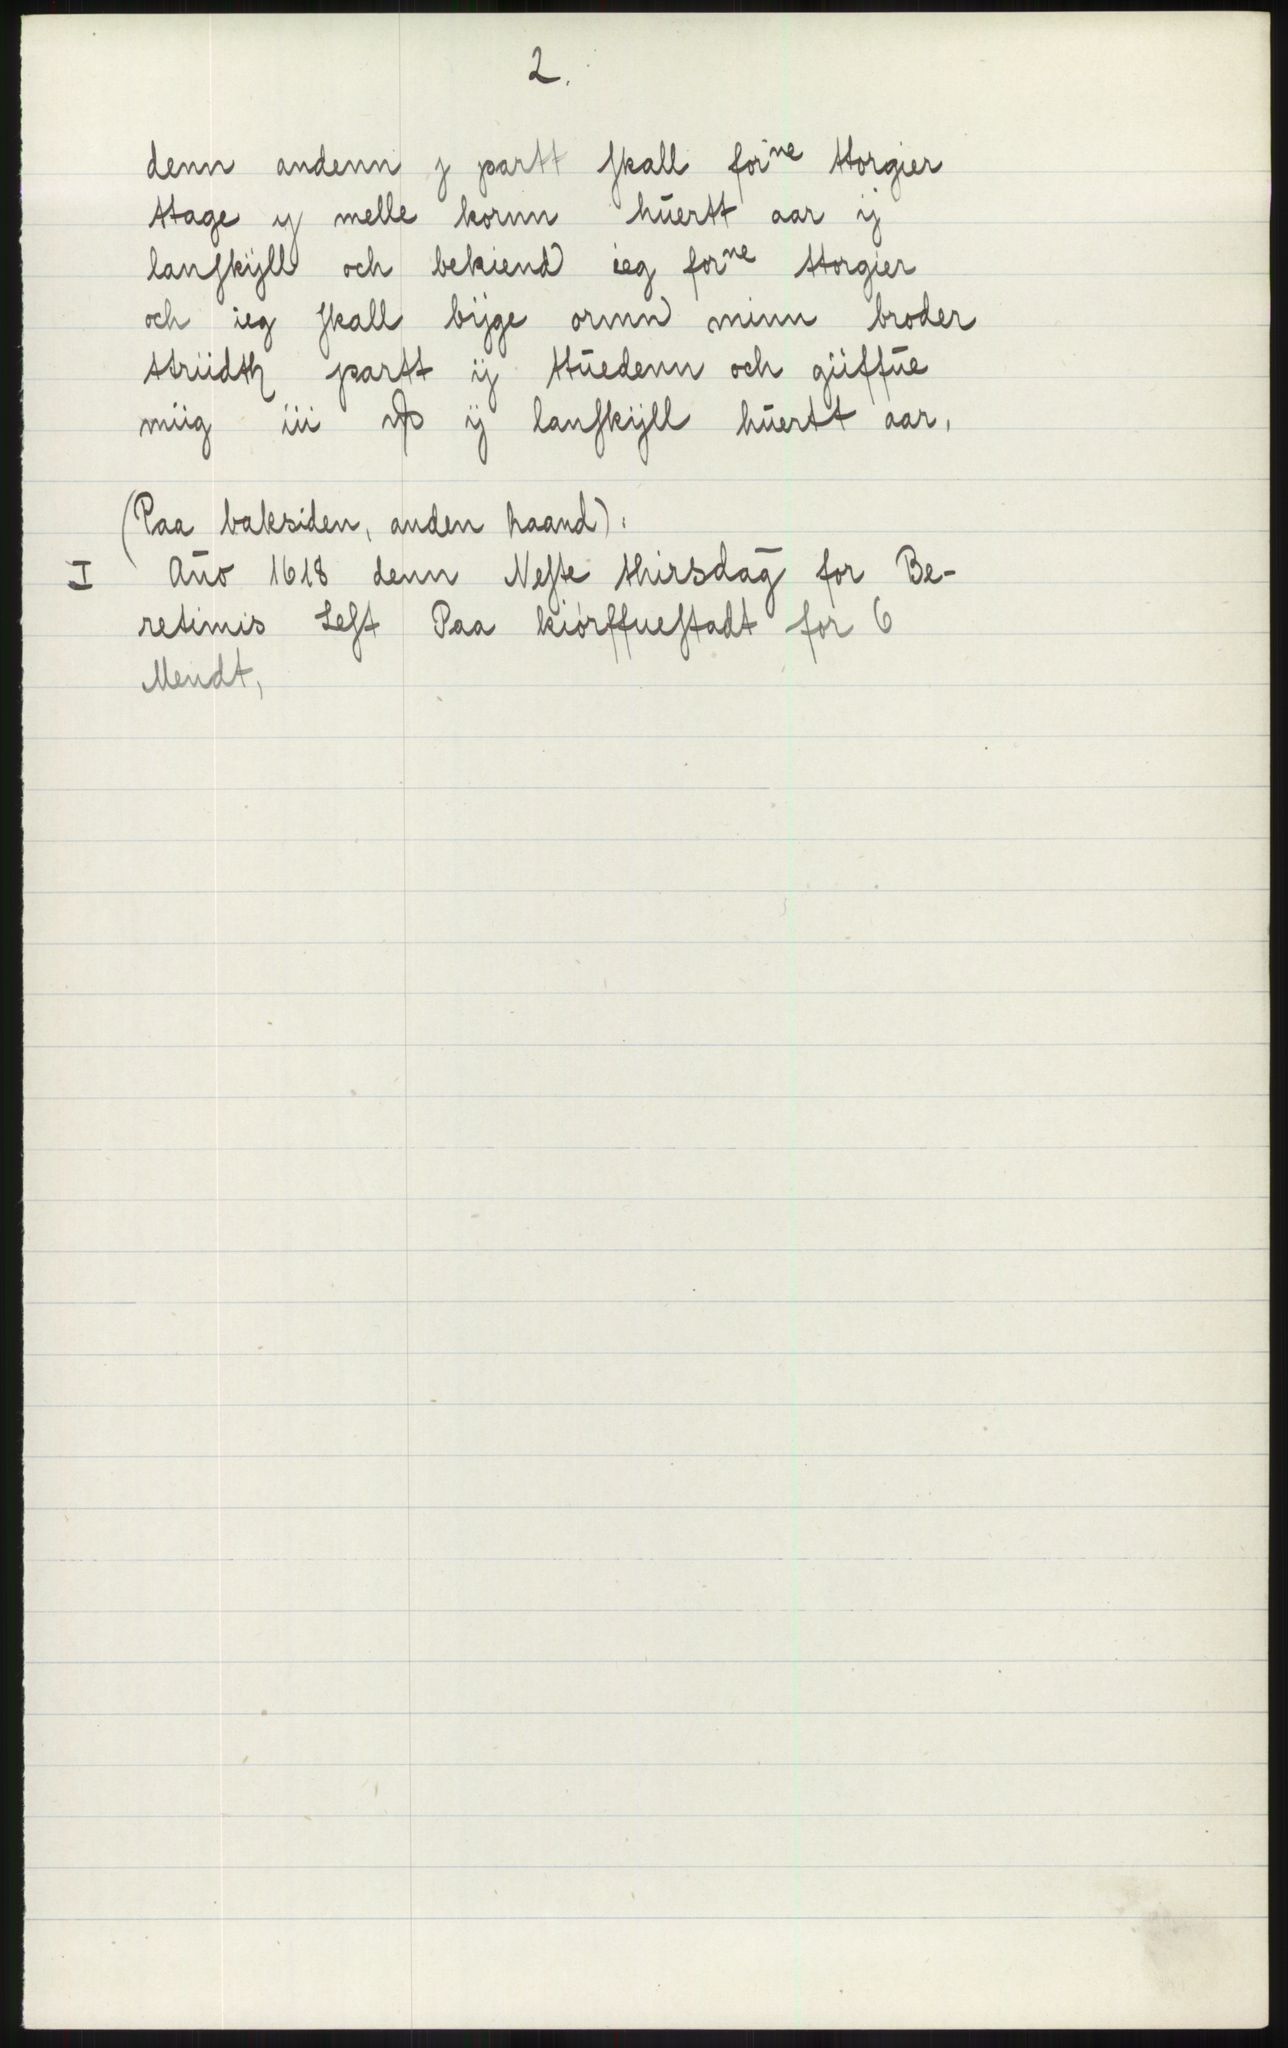 2.
denn andenn j partt skall forne ttorgier
ttage ij melle kornn huertt aar ij
lanskyll och bekiend ieg forne ttorgier
och ieg skall bijge ormn minn broder
ttriidth partt ij ttuedenn och giiffue
miig iii ij lanskijll huertt aar,
(Paa baksiden, anden haand):
I Año 1618 denn Neste thirsdag for Be-
retimis Lest Paa kiörffuestadt for 6
Mendt,